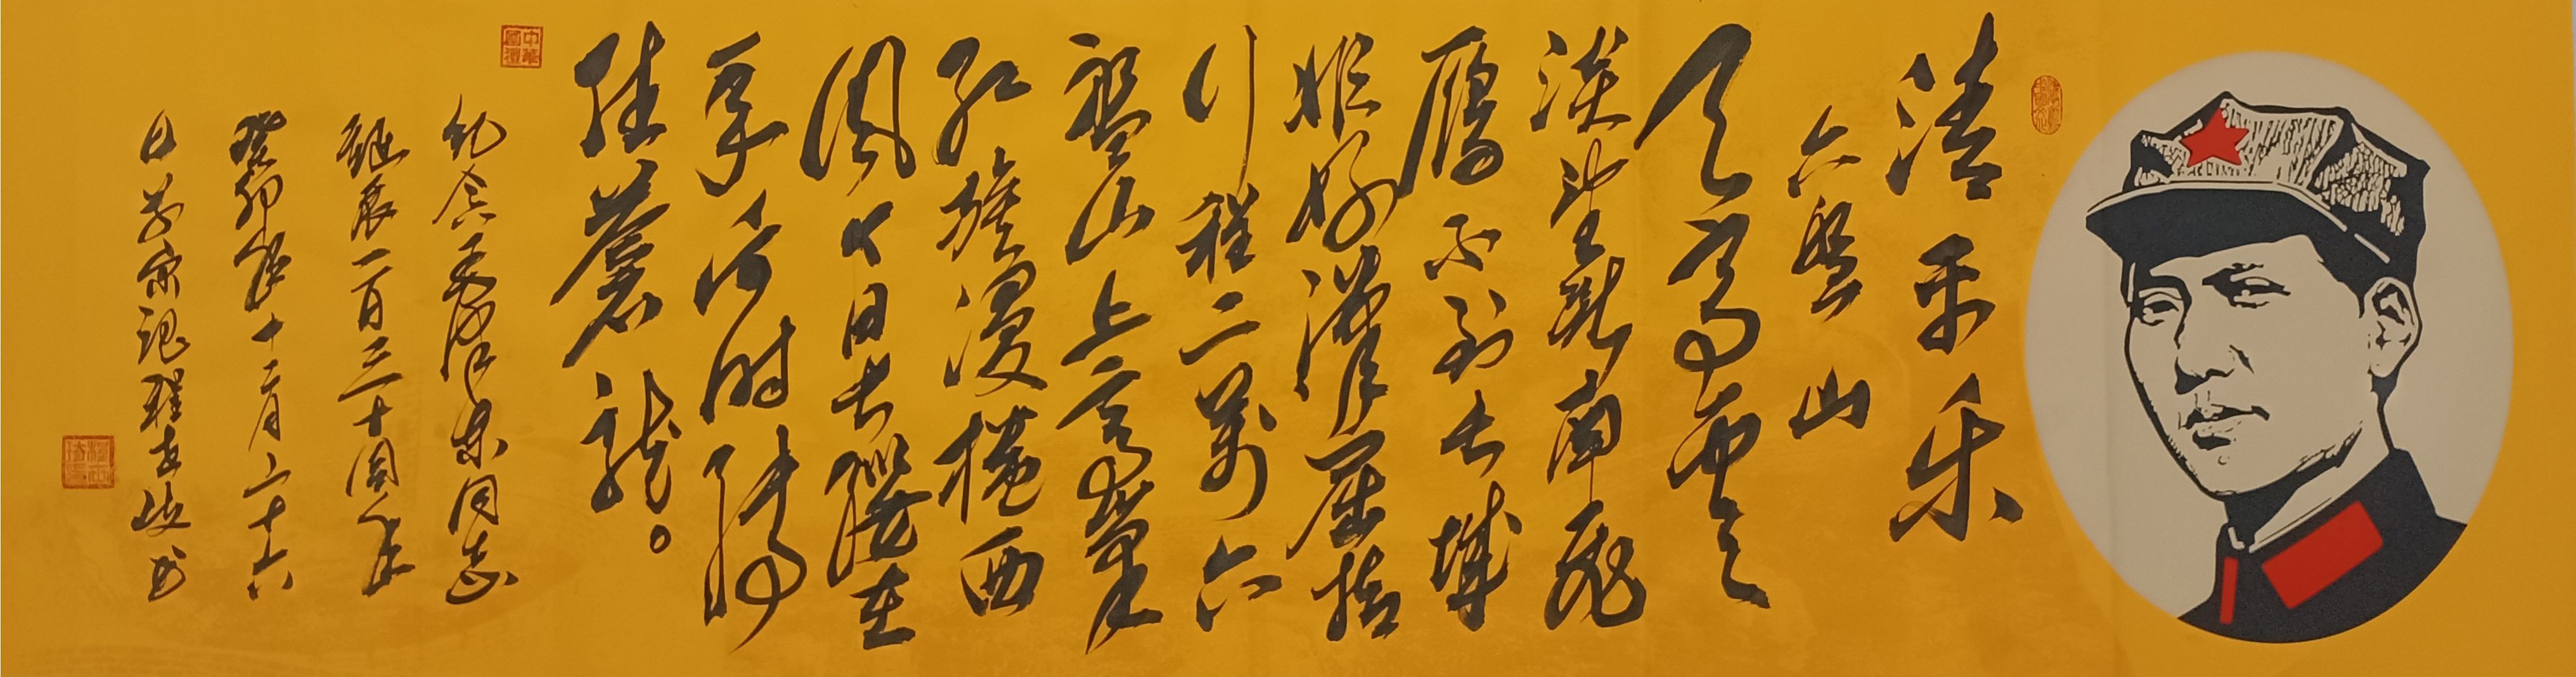 清平乐
六盘山
天高雲
淡望断南飛
雁不到长城
非好漢屈指
行程二萬六
盘山上高峰
红旗漫捲西
风今日长缨在
手何时缚
住蒼龍。
中華國禮
纪念毛泽东同志
诞辰一百三十周年
癸卯年十二月二十六
日 书